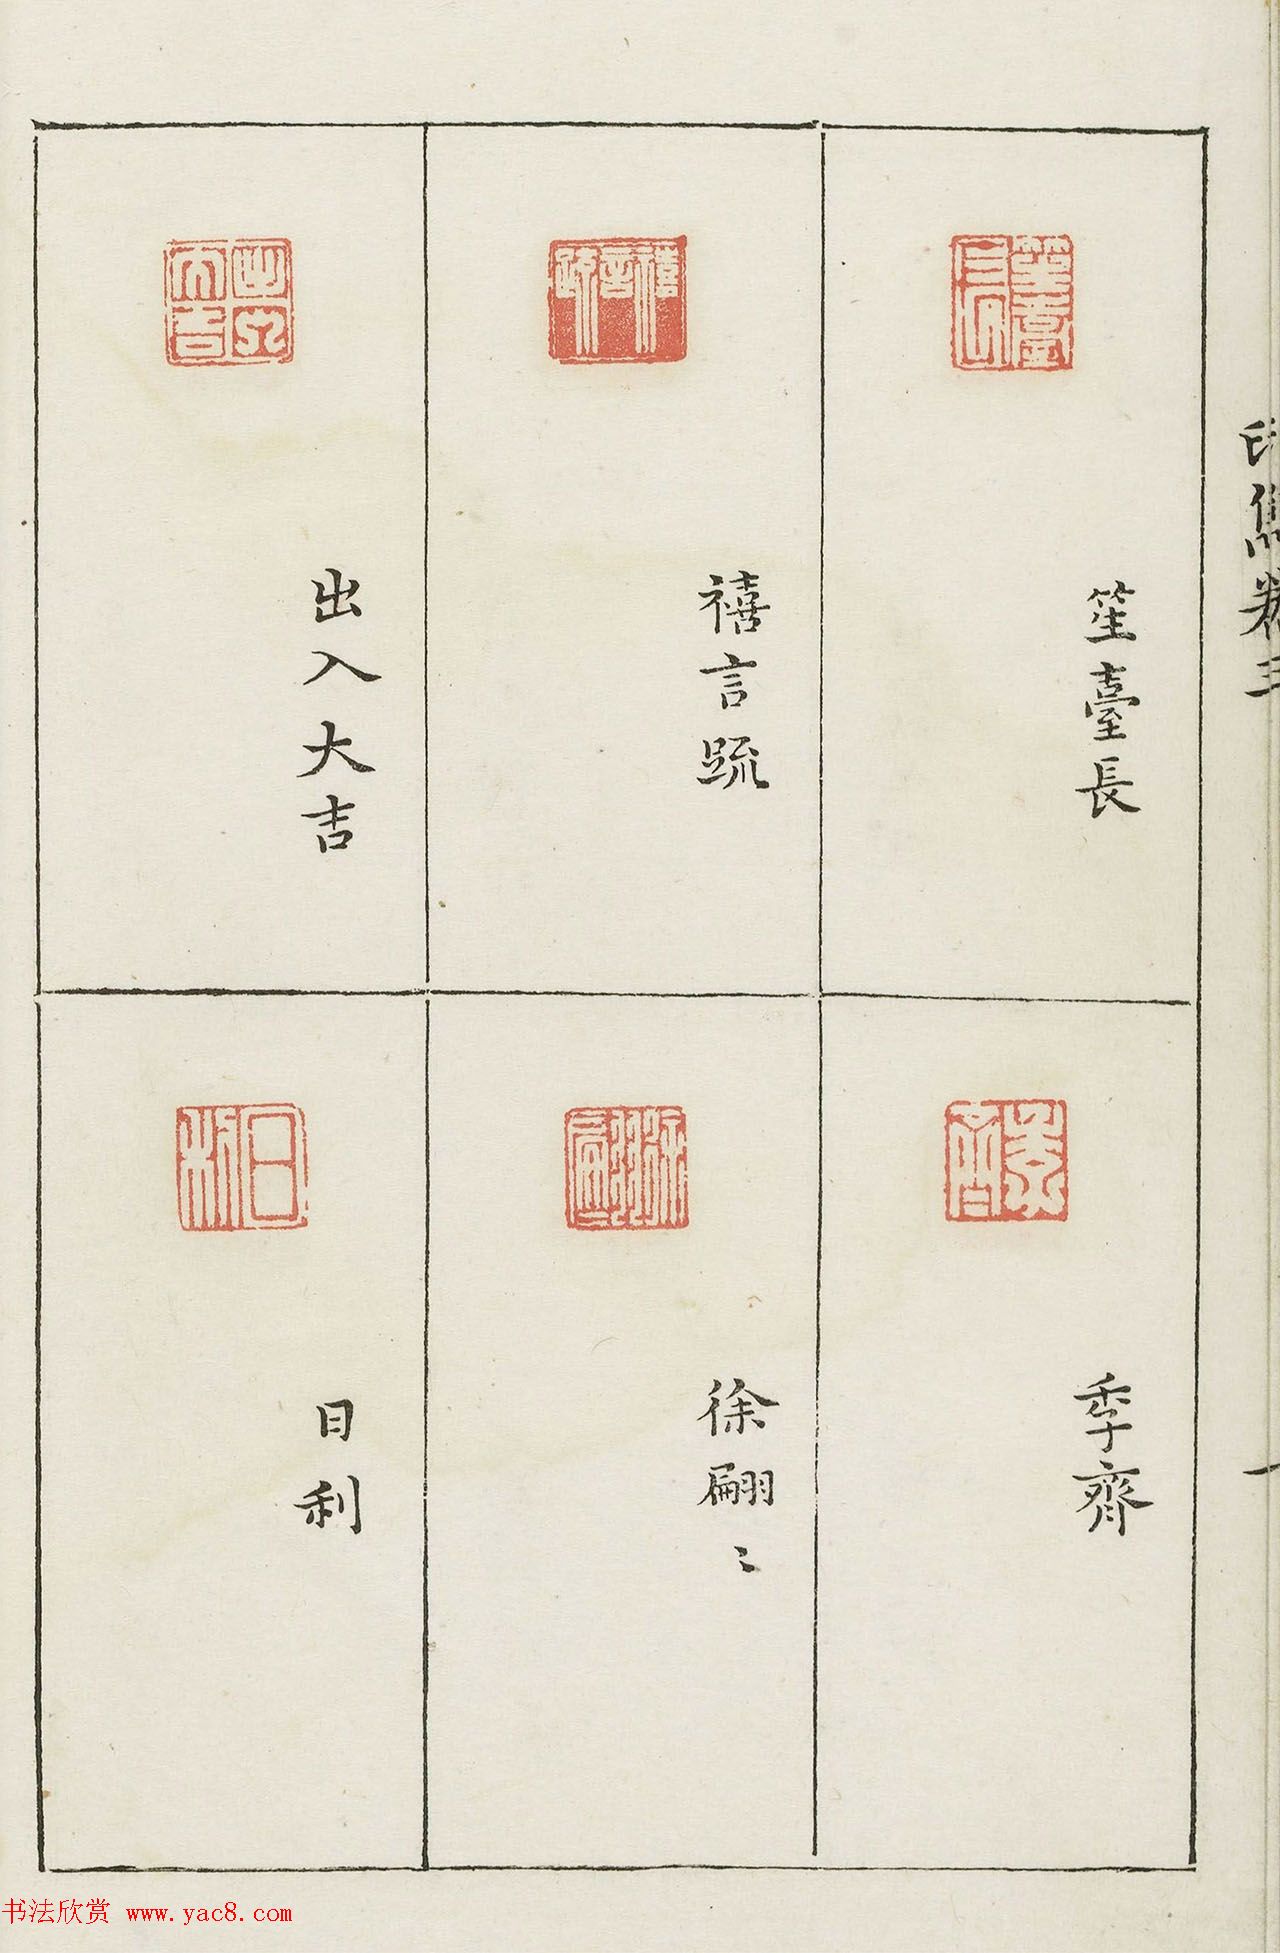 印雋卷三
一
笙臺長
禧言疏
出入大吉
季齊
徐翩〻
日利
书法欣赏 www.yac8.com